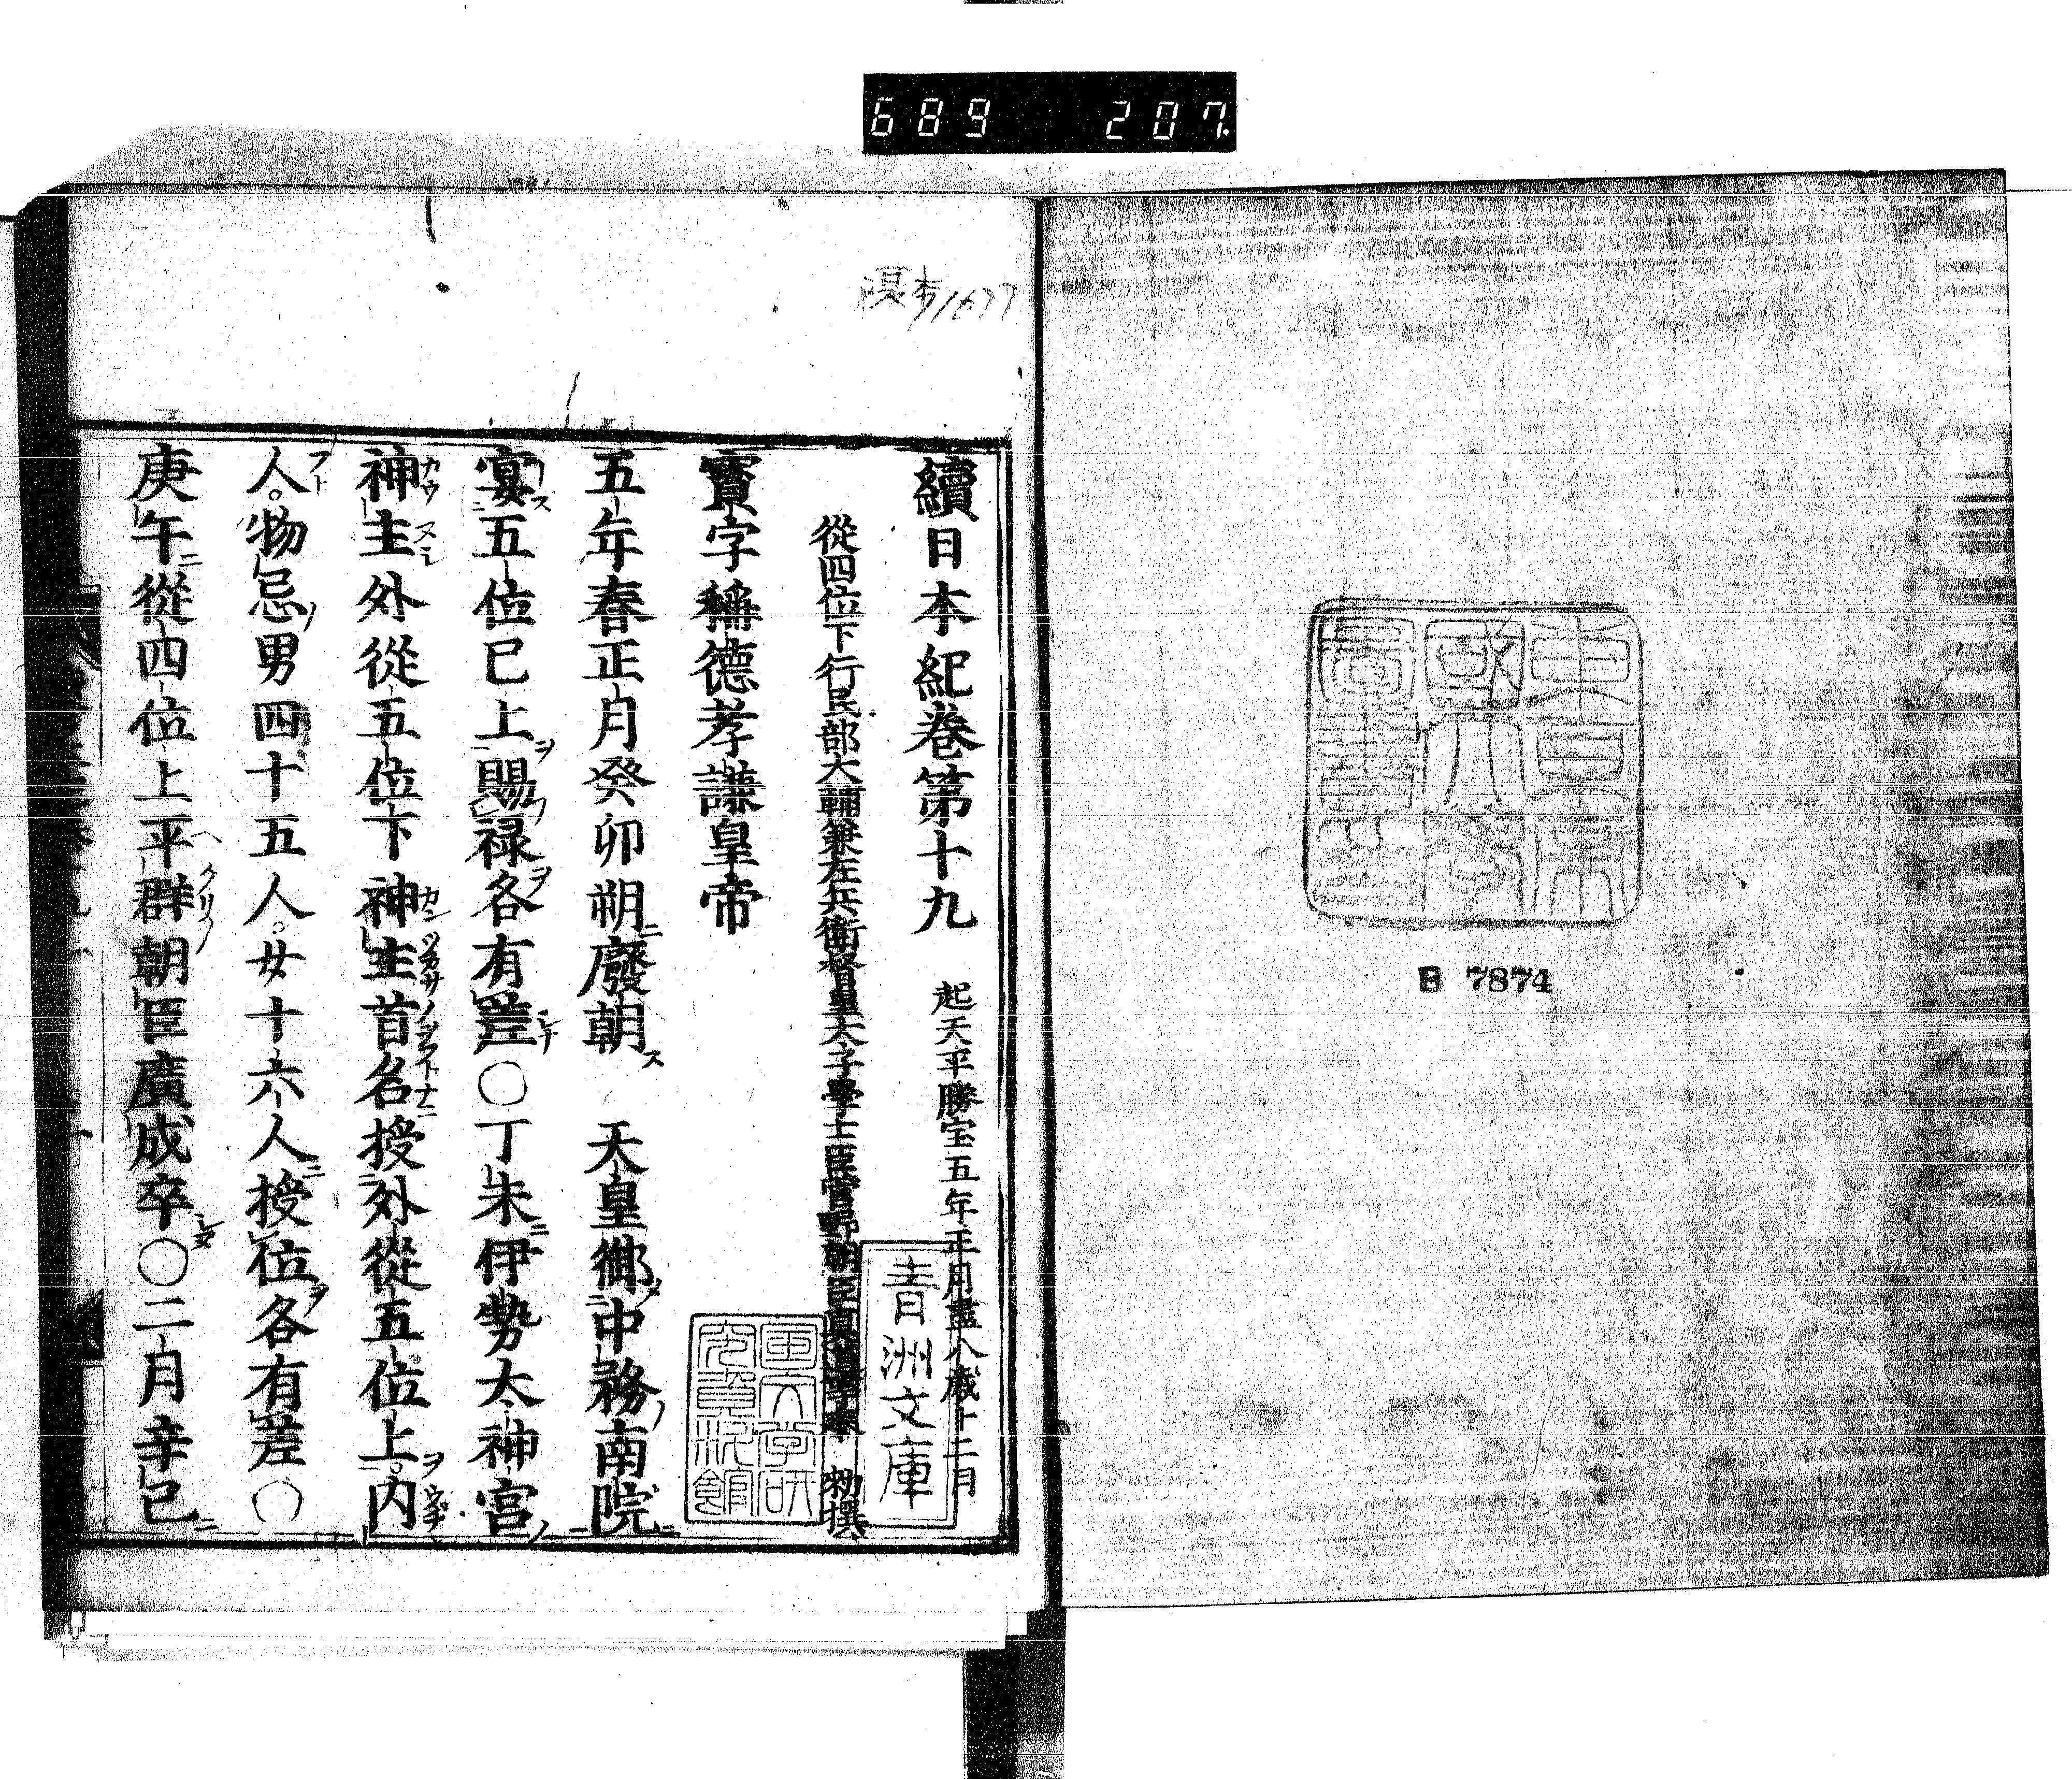 689 207
東京
帝國
大學
圖書
印
B 7874
青洲文庫
續日本紀卷第十九 起天平勝宝五年正月盡八歳十二月
從四位下行民部大輔兼左兵衛督皇太子學士臣菅野朝臣真道等奉 勅撰
寶字稱德孝謙皇帝
五年春正月癸卯朔ニ廢朝ス 天皇御中務ノ南院ニ
宴五位已上ヲ賜フ祿ヲ各有差〇丁未ニ伊勢太神宮ノ
神主外從五位下神主首名授外從五位上ヲ内
人。物忌ノ男四十五人。女十六人ニ授位ヲ各有差〇
庚午ニ從四位上平群朝臣廣成卒〇二月辛巳ニ
國文学研
究資料館